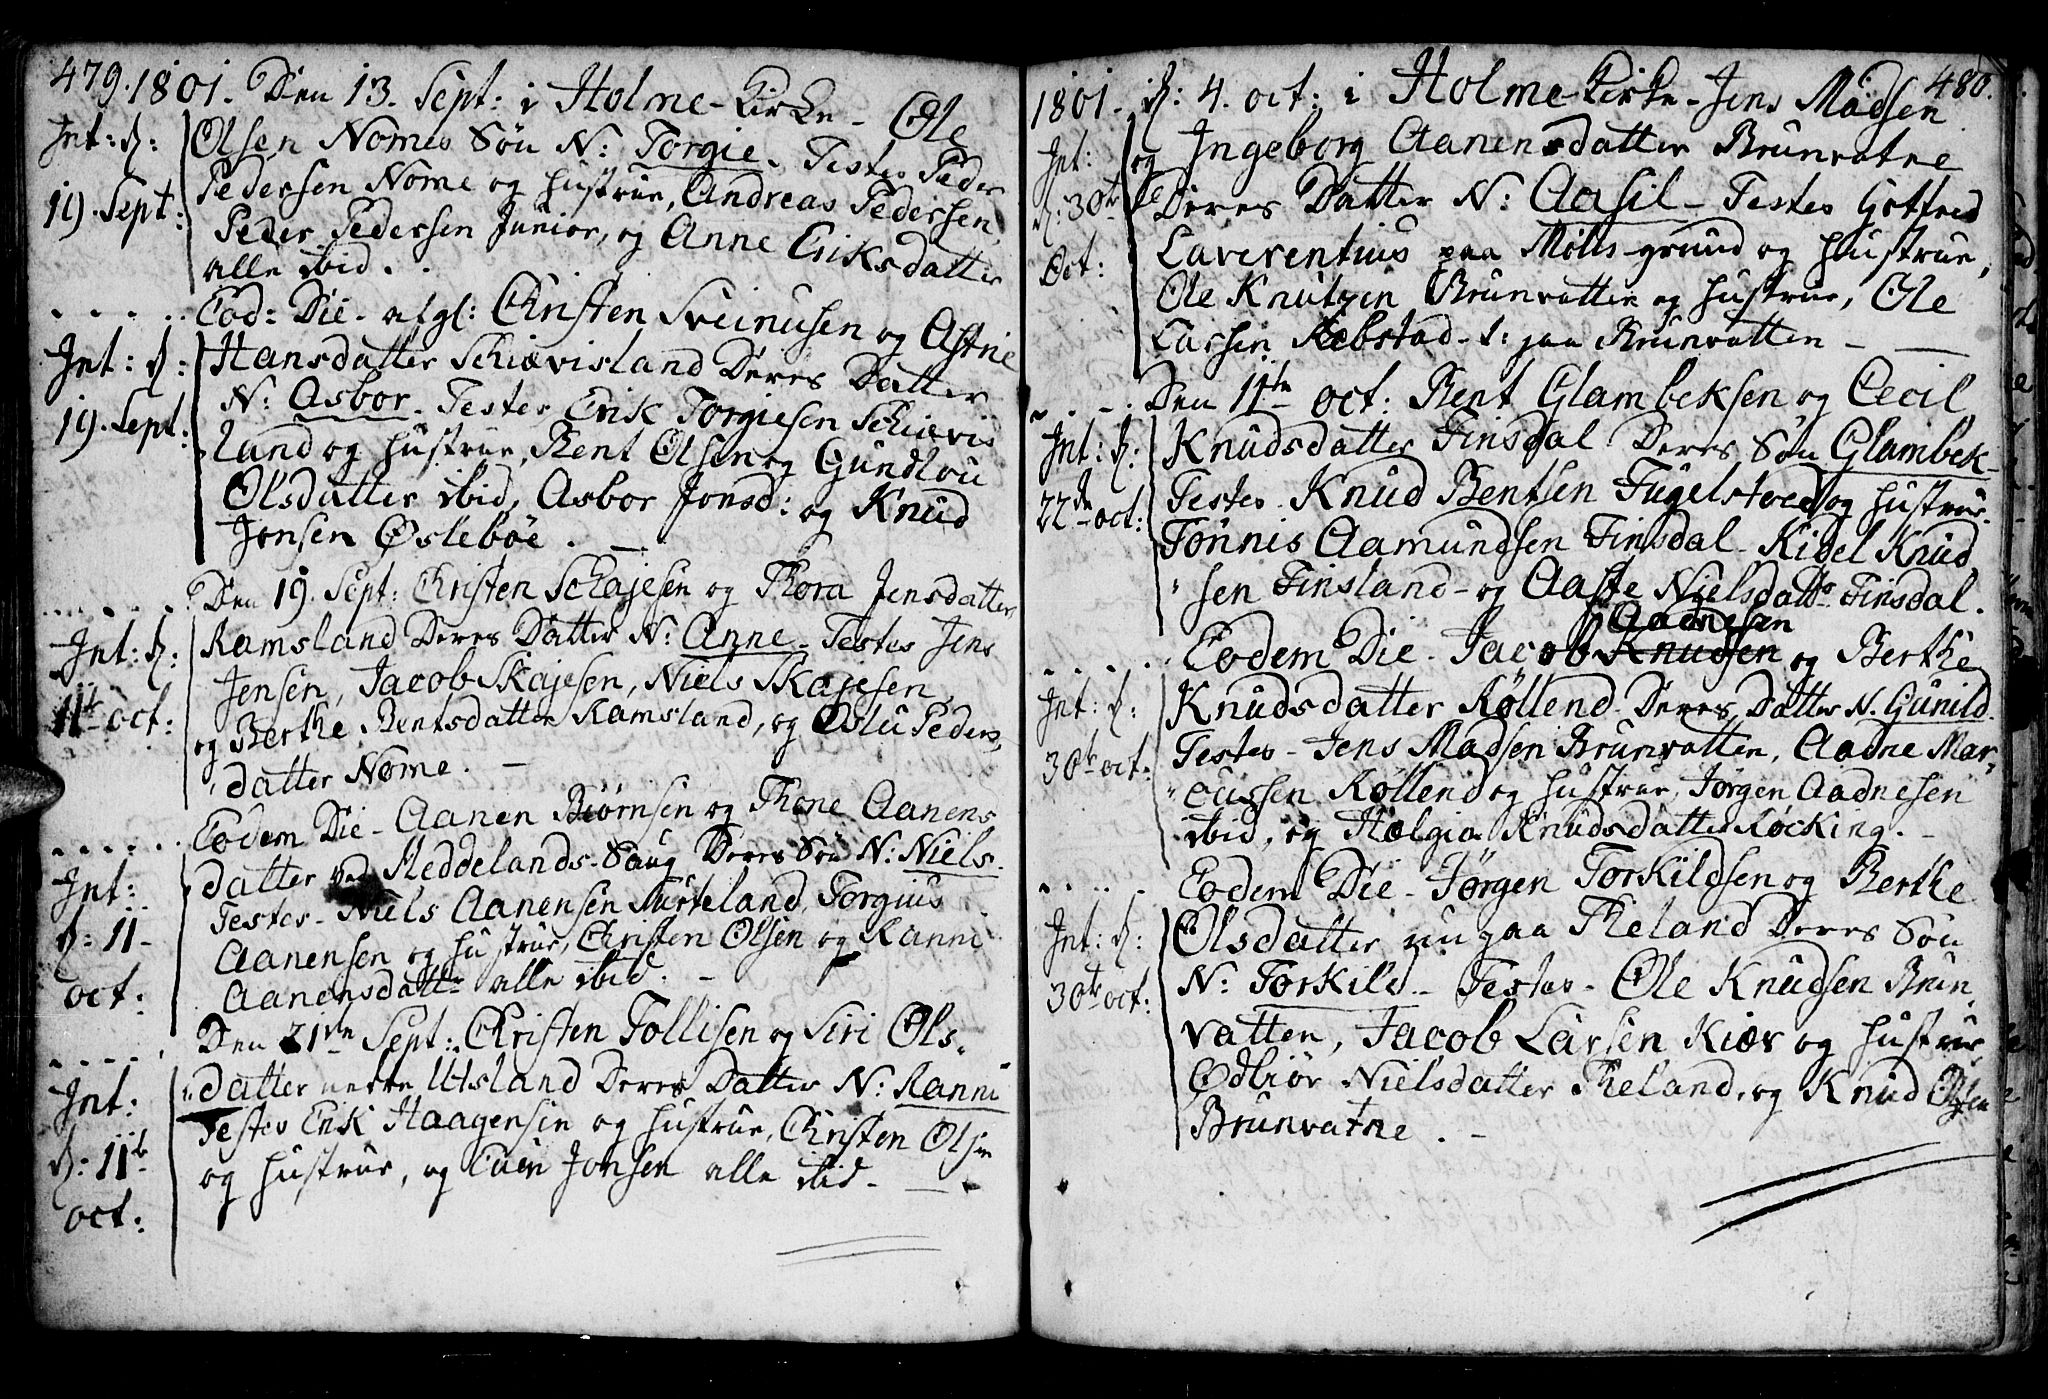 479. 1801. Den 13. Sept: i Holme-Kirke - Ole
Int: d: Olsen Nomes Søn N: Torgie. Testes Peder
19. Sept: Pedersen Nome og Hustrue, Andreas Pedersen,
Peder Pedersen Junior, og Anne Eriksdatter
alle ibid.
Eod: Die - Christen Sveinusen og Astrie
Int: d: Hansdatter Schiævisland Deres Datter
19. Sept: N: Asbor. Testes Erik Torgiesen Schiævis
land og Hustrue, Bent Olsen og Gundlou
Olsdatter ibid, Asbor Jonsd: og Knud
Jonsen Øslebøe. -
Den 19. Sept: Christen Schajesen og Thora Jensdatter
Int: d: Ramsland Deres Datter N: Anne - Testes Jens
11te oct: Jensen, Jacob Skajesen, Niels Skajesen,
og Berthe Bentsdatter Ramsland, og Oslu Peders
datter Nome. -
Eodem Die - Aanen Biørnsen og Thone Aanens
Int: datter ved Reddelands-Saug Deres Søn N: Niels.
d: 11- Testes - Niels Aanensen, Torgius
oct: Aanensen og Hustrue, Christen Olsen og Ranni
Aanensdatt: alle ibid. -
Den 21de Sept: Christen Tollisen og Siri Ols
Int: datter Utsland Deres Datter N: Ranni
d: 11te Testes Erik Haagensen og Hustrue, Christen Olsen
oct: og Hustrue, og Even Jonsen alle ibid. -
1801. d: 4. oct: i Holme-Kirke - Jens Madsen 480.
Int: og Ingeborg Aanensdatter Brunvatne
d: 30te Deres Datter N: Aasil - Testes Gotfred
Oct: Laverentius paa Mølls-grund og Hustrue,
Ole Knutzen Brunvatten og Hustrue, Ole
Larsen Rebstad - i: paa Brunvatten -
Den 11te oct: Bent Glambeksen og Cecil
Int: d: Knudsdatter Finsdal Deres Søn Glambek -
22de oct: Testes - Knud Bentsen Fugelstved og Hustrue.
Tønnis Aamundsen Finsdal - Kidel Knud
sen Finsland - og Aaste Nielsdatt: Finsdal.
Aadnesen
Eodem Die - Jacob Knudsen og Berthe
Int: d: Knudsdatter Røllend Deres Datter N. Gunild.
30te oct: Testes - Jens Madsen Brunvatten, Aadne Mar,
cussen Røllend og Hustrue, Jørgen Aadnesen
ibid, og Helgia Knudsdatter Røcking. -
Eodem Die - Jørgen Torkildsen og Berthe
Int: d: Olsdatter nu paa Theland Deres Søn
30te oct: N: Torkild - Testes - Ole Knudsen Brun,
vatten, Jacob Larsen Kiær og Hustrue,
Odbiør Nielsdatter Theland, og Knud Olsen
Brunvatne. -